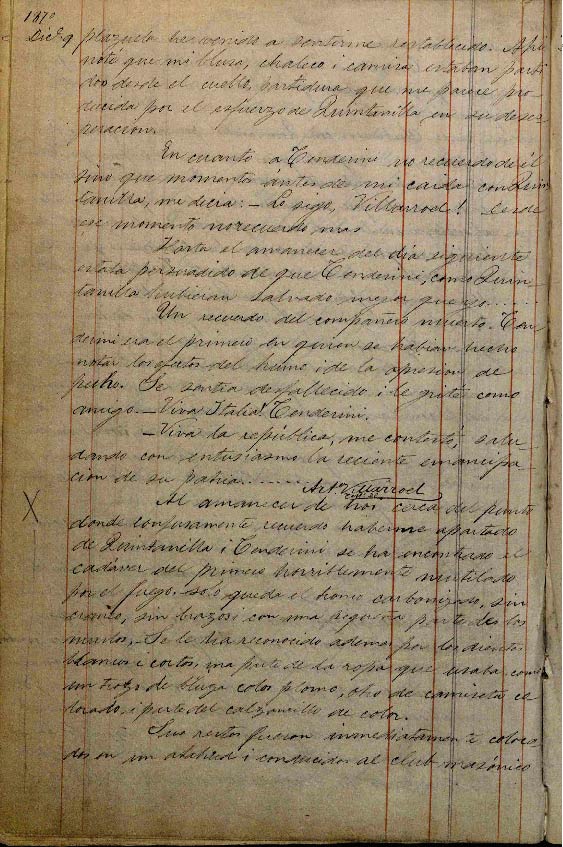 1870
Dic. 9 plazuela he venido a sentirme restablecido. Apé
noté que mi blusa, chaleco i camisa estaban parti
dos desde el cuello, partidura que me parece pro
ducida por el esfuerzo de Quintanilla en su deses
peracion.
En cuanto a Tenderini no recuerdo de él
sino que momentos ántes de mi caida con Quin
tanilla, me decia: - Lo sigo, Villarroel! Desde
ese momento no recuerdo mas
Hasta el amanecer del dia siguiente
estaba persuadido de que Tenderini, como Quin
tanilla hubieran salvado mejor que yo.....
Un recuerdo del compañero muerto. Ten
derini era el primero en quien se habian hecho
notar los efectos del humo i de la opresion de
pecho. Se sentia desfallecido i le grité como
amigo. - Viva Italia! Tenderini.
- Viva la república, me contestó, salu
dando con entusiasmo la reciente emancipa
cion de su patria.......
Villarroel
X
Al amanecer de hoi cerca del punto
donde confusamente recuerdo haberme apartado
de Quintanilla i Tenderini se ha encontrado el
cadáver del primero horriblemente mutilado
por el fuego. Solo queda el tronco carbonizado, sin
cráneo, sin brazos i con una pequeña parte de los
muslos. Se le ha reconocido ademas por los dientes
blancos i cortos, una parte de la ropa que usaba, como
un trozo de blusa color plomo, otro de camiseta
i parte del calzoncillo de color.
Sus restos fueron inmediatamente coloca
dos en un ataud i conducidos al club masónico